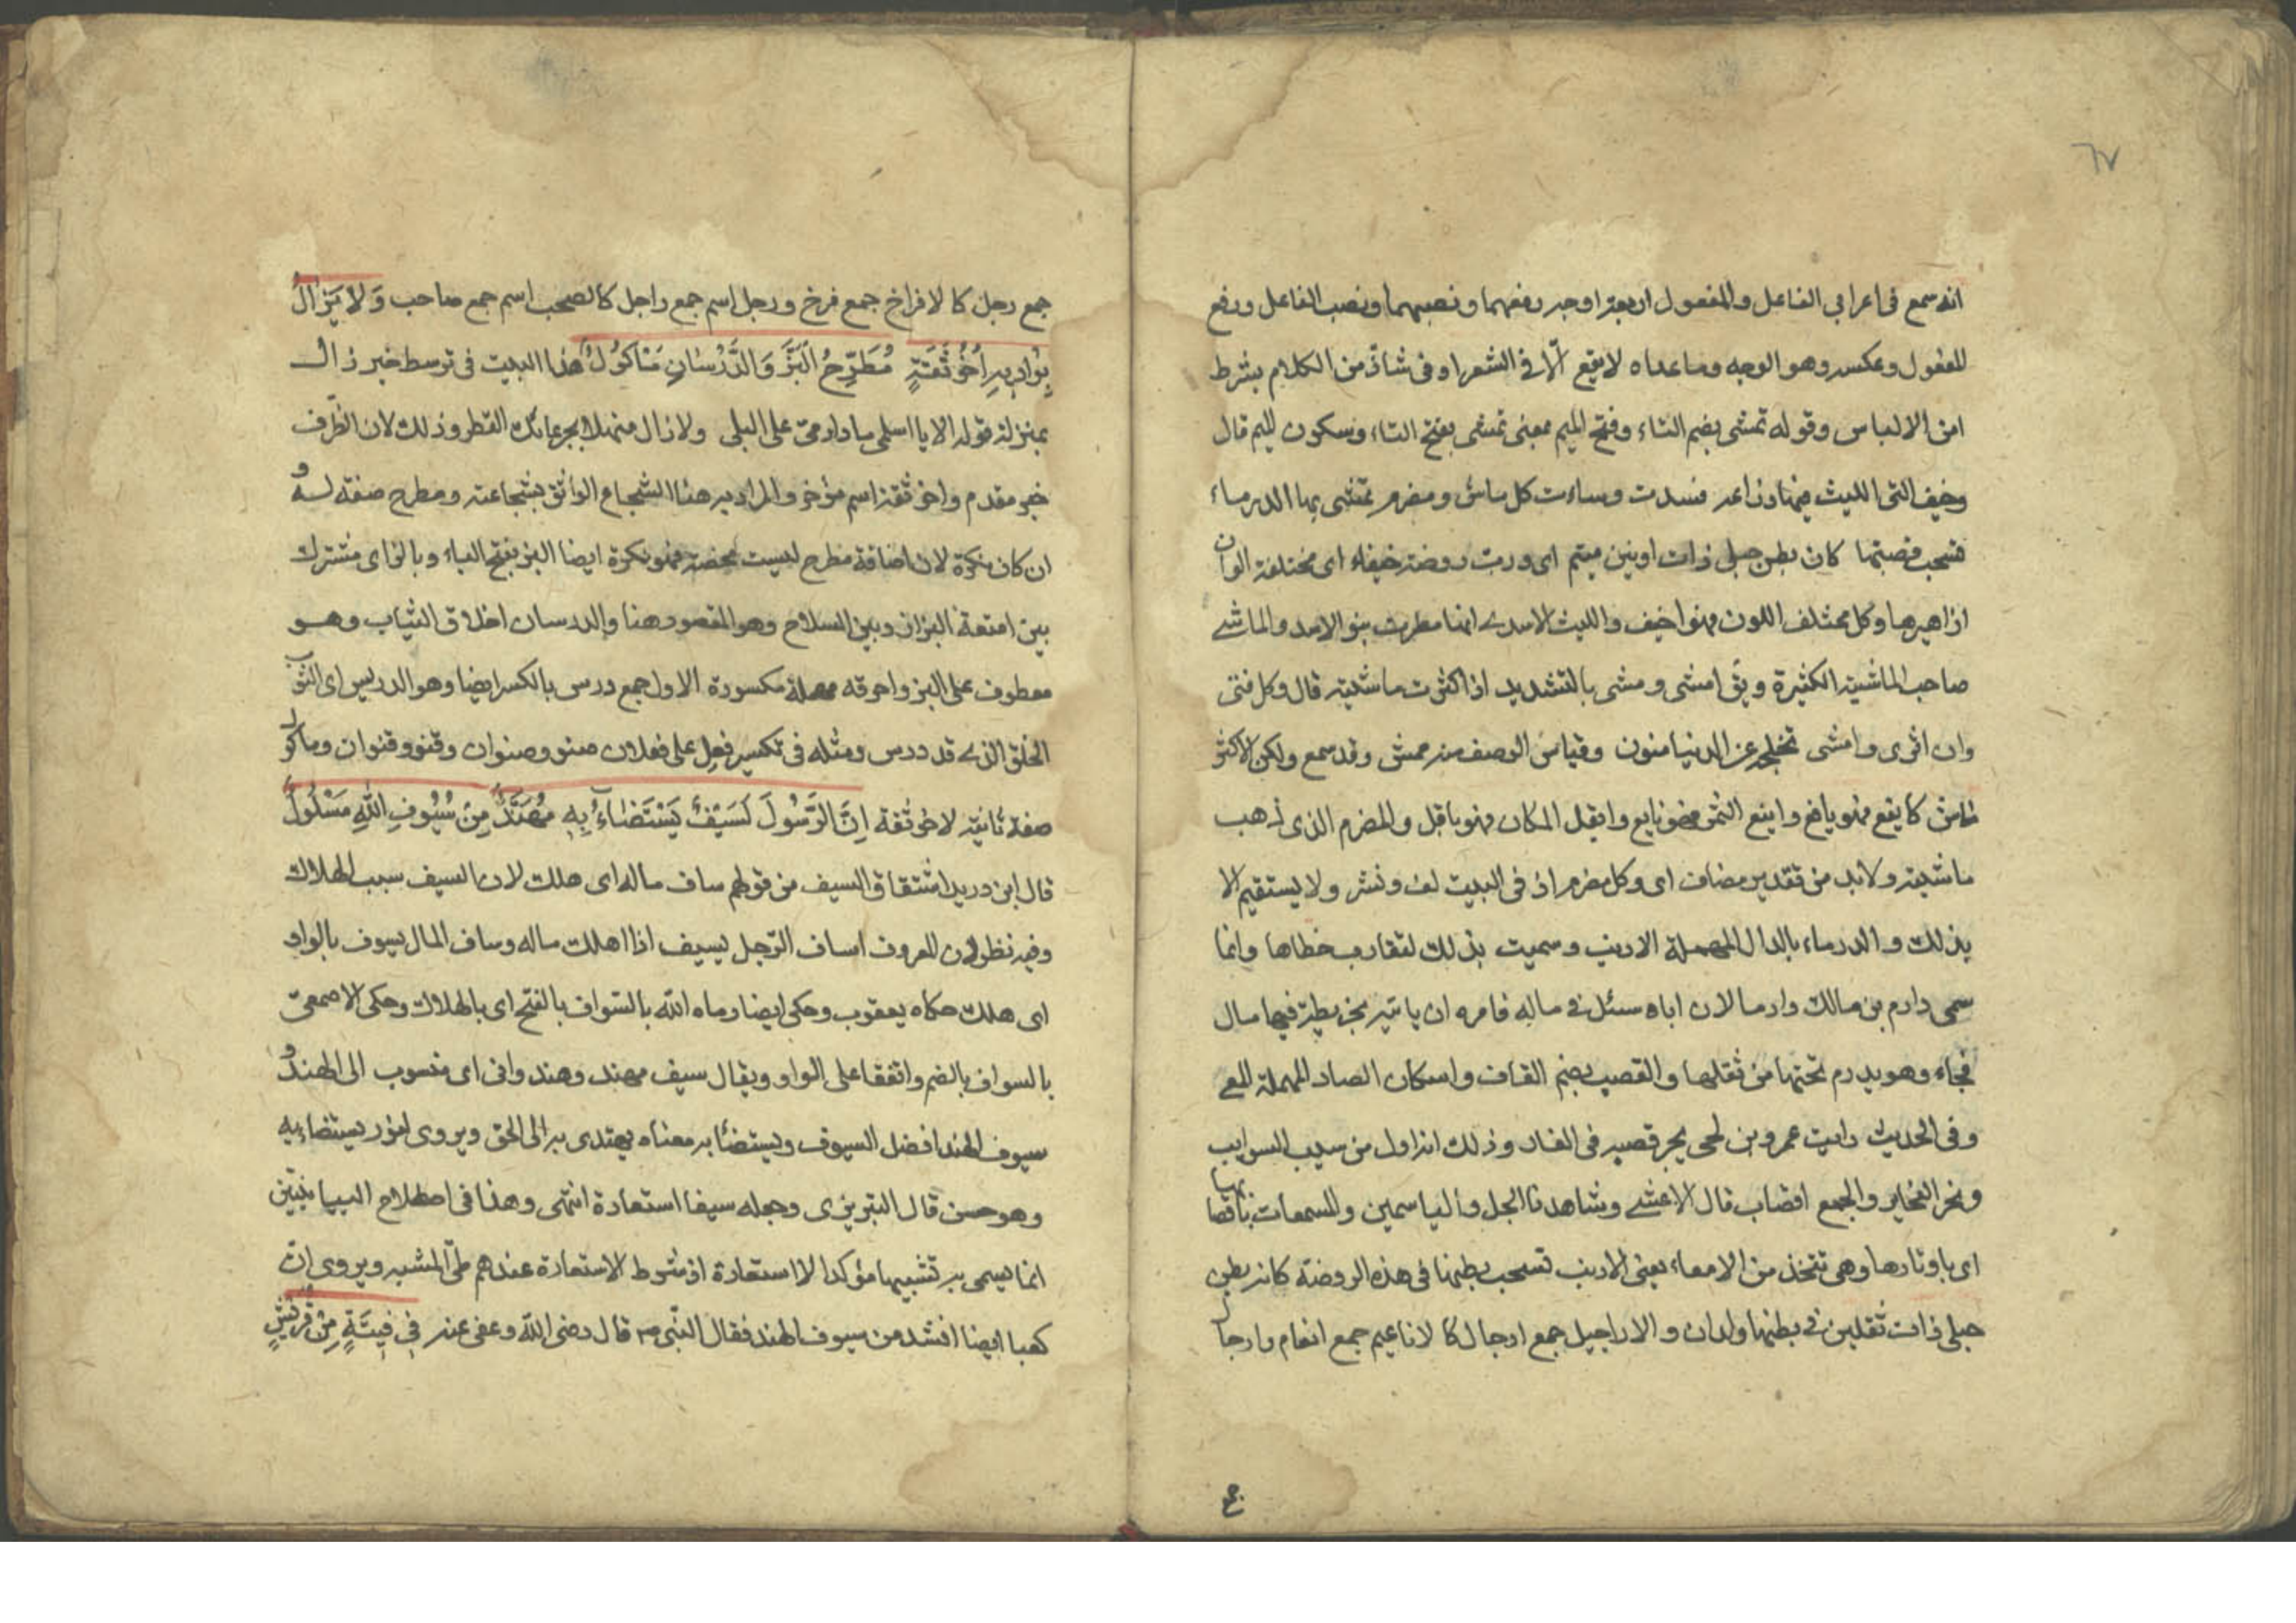 ٦٧
انه سمع في اعرابي الفاعل والمفعول اربعة اوجه رفعهما ونصبهما ونصب الفاعل ورفع
المفعول وعكسه وهو الوجه وما عداه لا يقع الّا في الشعر او في شاذّ من الكلام بشرط
امن الالباس وقوله تمشى بضم التاء وفتح الميم بمعنى تمشى بفتح التاء وسكون الميم قال
وخيف القى الليث فيها ذراعه فسدت وساءت كل ماش ومصرم تمشى بها الدرماء
تسحب قصبها كان بطن حبلى ذات اونين ميتم اى ورب روضة خيفاء اى مختلفة الوان
ازاهيرها وكل مختلف اللون فهو اخيف والليث الاسد اى انها مطرت بنو الاسد والماشي
صاحب الماشية الكثيرة ويق امشى ومشى بالتشديد اذا كثرت ماشيته قال وكل فتى
وان اثرى وامشى تخلجه عن الدنيا منون وقياس الوصف منه ممش وقد سمع ولكن الاكثر
ماش كايفع فهو يافع واينع الثمر فهو يانع وابقل المكان فهو باقل والمصرم الذى ذهب
ماشيته ولا بد من تقدير مضاف اى وكل مصرم اذ في البيت لف ونشر ولا يستقيم الا
بذلك والدرماء بالدال المهملة الارنب وسميت بذلك لتقارب خطاها وانما
سمى دارم بن مالك دارما لان اباه سئل في ماله فامره ان ياتيه بخريطة فيها مال
فجاء وهو يدرم تحتها من ثقلها والقصب بضم القاف واسكان الصاد المهملة المعى
وفى الحديث رايت عمرو بن لحى يجر قصبه في النار وذلك انه اول من سيب السوايب
وبحر البحاير والجمع اقصاب قال الاعشى وشاهدنا الجل والياسمين والمسمعات باقصابها
اى باوتارها وهى تتخذ من الامعاء يعنى الارنب تسحب بطنها في هذه الروضة كانه بطن
حبلى ذات ثقلين في بطنها ولدان والاراجيل جمع ارجال كالاناعيم جمع انعام وارجال
جمع رجل كالافراخ جمع فرخ ورجل اسم جمع راجل كالصحب اسم جمع صاحب وَلَا يَزَالُ
بِوَادِيهِ اَخُو ثِقَةٍ مُطَرَّحُ الْبَزِّ وَالدَّرْسَانِ مَأْكُولُ هذا البيت في توسط خبر زال
بمنزلة قوله الا يا اسلمى يا دار مى على البلى ولا زال منهلا بجرعائك القطر وذلك لان الظرف
خبر مقدم واخو ثقة اسم مؤخر والمراد به هنا الشجاع الواثق بشجاعته ومطرح صفته له و
ان كان نكرة لان اضافة مطرح ليست محضة فهو نكرة ايضا البز بفتح الباء وبالزاى مشترك
بين امتعة البزاز وبين السلاح وهو المقصود هنا والدرسان اخلاق الثياب وهو
معطوف على البز واحرفه مهملة مكسورة الاول جمع درس بالكسر ايضا وهو الدريس اى الثوب
الخلق الذى قد درس ومثله في تكسير فعل على فعلان صنو وصنوان وقنو وقنوان وماكول
صفة ثانية لاخو ثقة اِنَّ الرَّسُولَ لَسَيْفٌ يُسْتَضَاءُ بِهِ مُهَنَّدٌ مِنْ سُيُوفِ اللّٰهِ مَسْلُولُ
قال ابن دريد اشتقاق السيف من قولهم ساف ماله اى هلك لان السيف سبب الهلاك
وفيه نظر لان المعروف اساف الرّجل يسيف اذا اهلك ماله وساف المال يسوف بالواو
اى هلك حكاه يعقوب وحكى ايضا رماه الله بالسواف بالفتح اى بالهلاك وحكى الاصمعى
بالسواف بالضم واتفقا على الواو ويقال سيف مهند وهند وانى اى منسوب الى الهند و
سيوف الهند افضل السيوف ويستضئا به معناه يهتدى به الى الحق ويروى لنور يستضاء به
وهو حسن قال التبريزى وجعله سيفا استعارة انتهى وهذا في اصطلاح البيانيّين
انما يسمى به تشبيها مؤكدا لا استعارة اذ شرط الاستعارة عندهم طىّ المشبه ويروى انّ
كعبا ايضا انشد من سيوف الهند فقال النّبى م قال رضى الله وعفى عنه فِي فِتْيَةٍ مِنْ قُرَيْشٍ